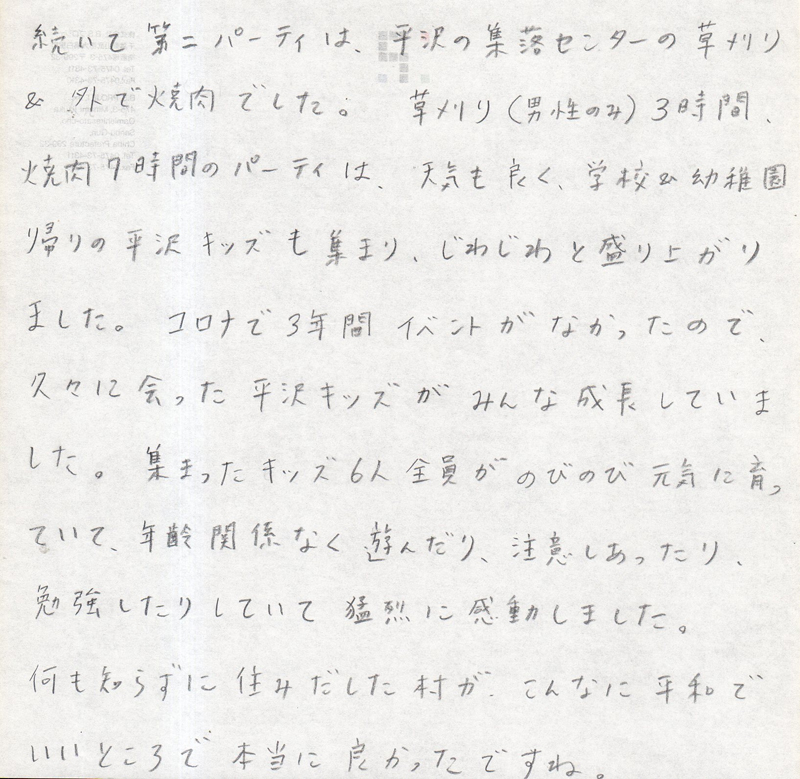 続いて第二パーティは、平沢の集落センターの草刈り
& 外で焼肉でした。 草刈り(男性のみ)3時間、
焼肉7時間のパーティは、天気も良く、学校&幼稚園
帰りの平沢キッズも集まり、じわじわと盛り上がり
ました。 コロナで3年間イベントがなかったので、
久々に会った平沢キッズがみんな成長していま
した。 集まったキッズ6人全員がのびのび元気に育っ
ていて、年齢関係なく遊んだり、注意しあったり、
勉強したりしていて猛烈に感動しました。
何も知らずに住みだした村が、こんなに平和で
いいところで本当に良かったですね。